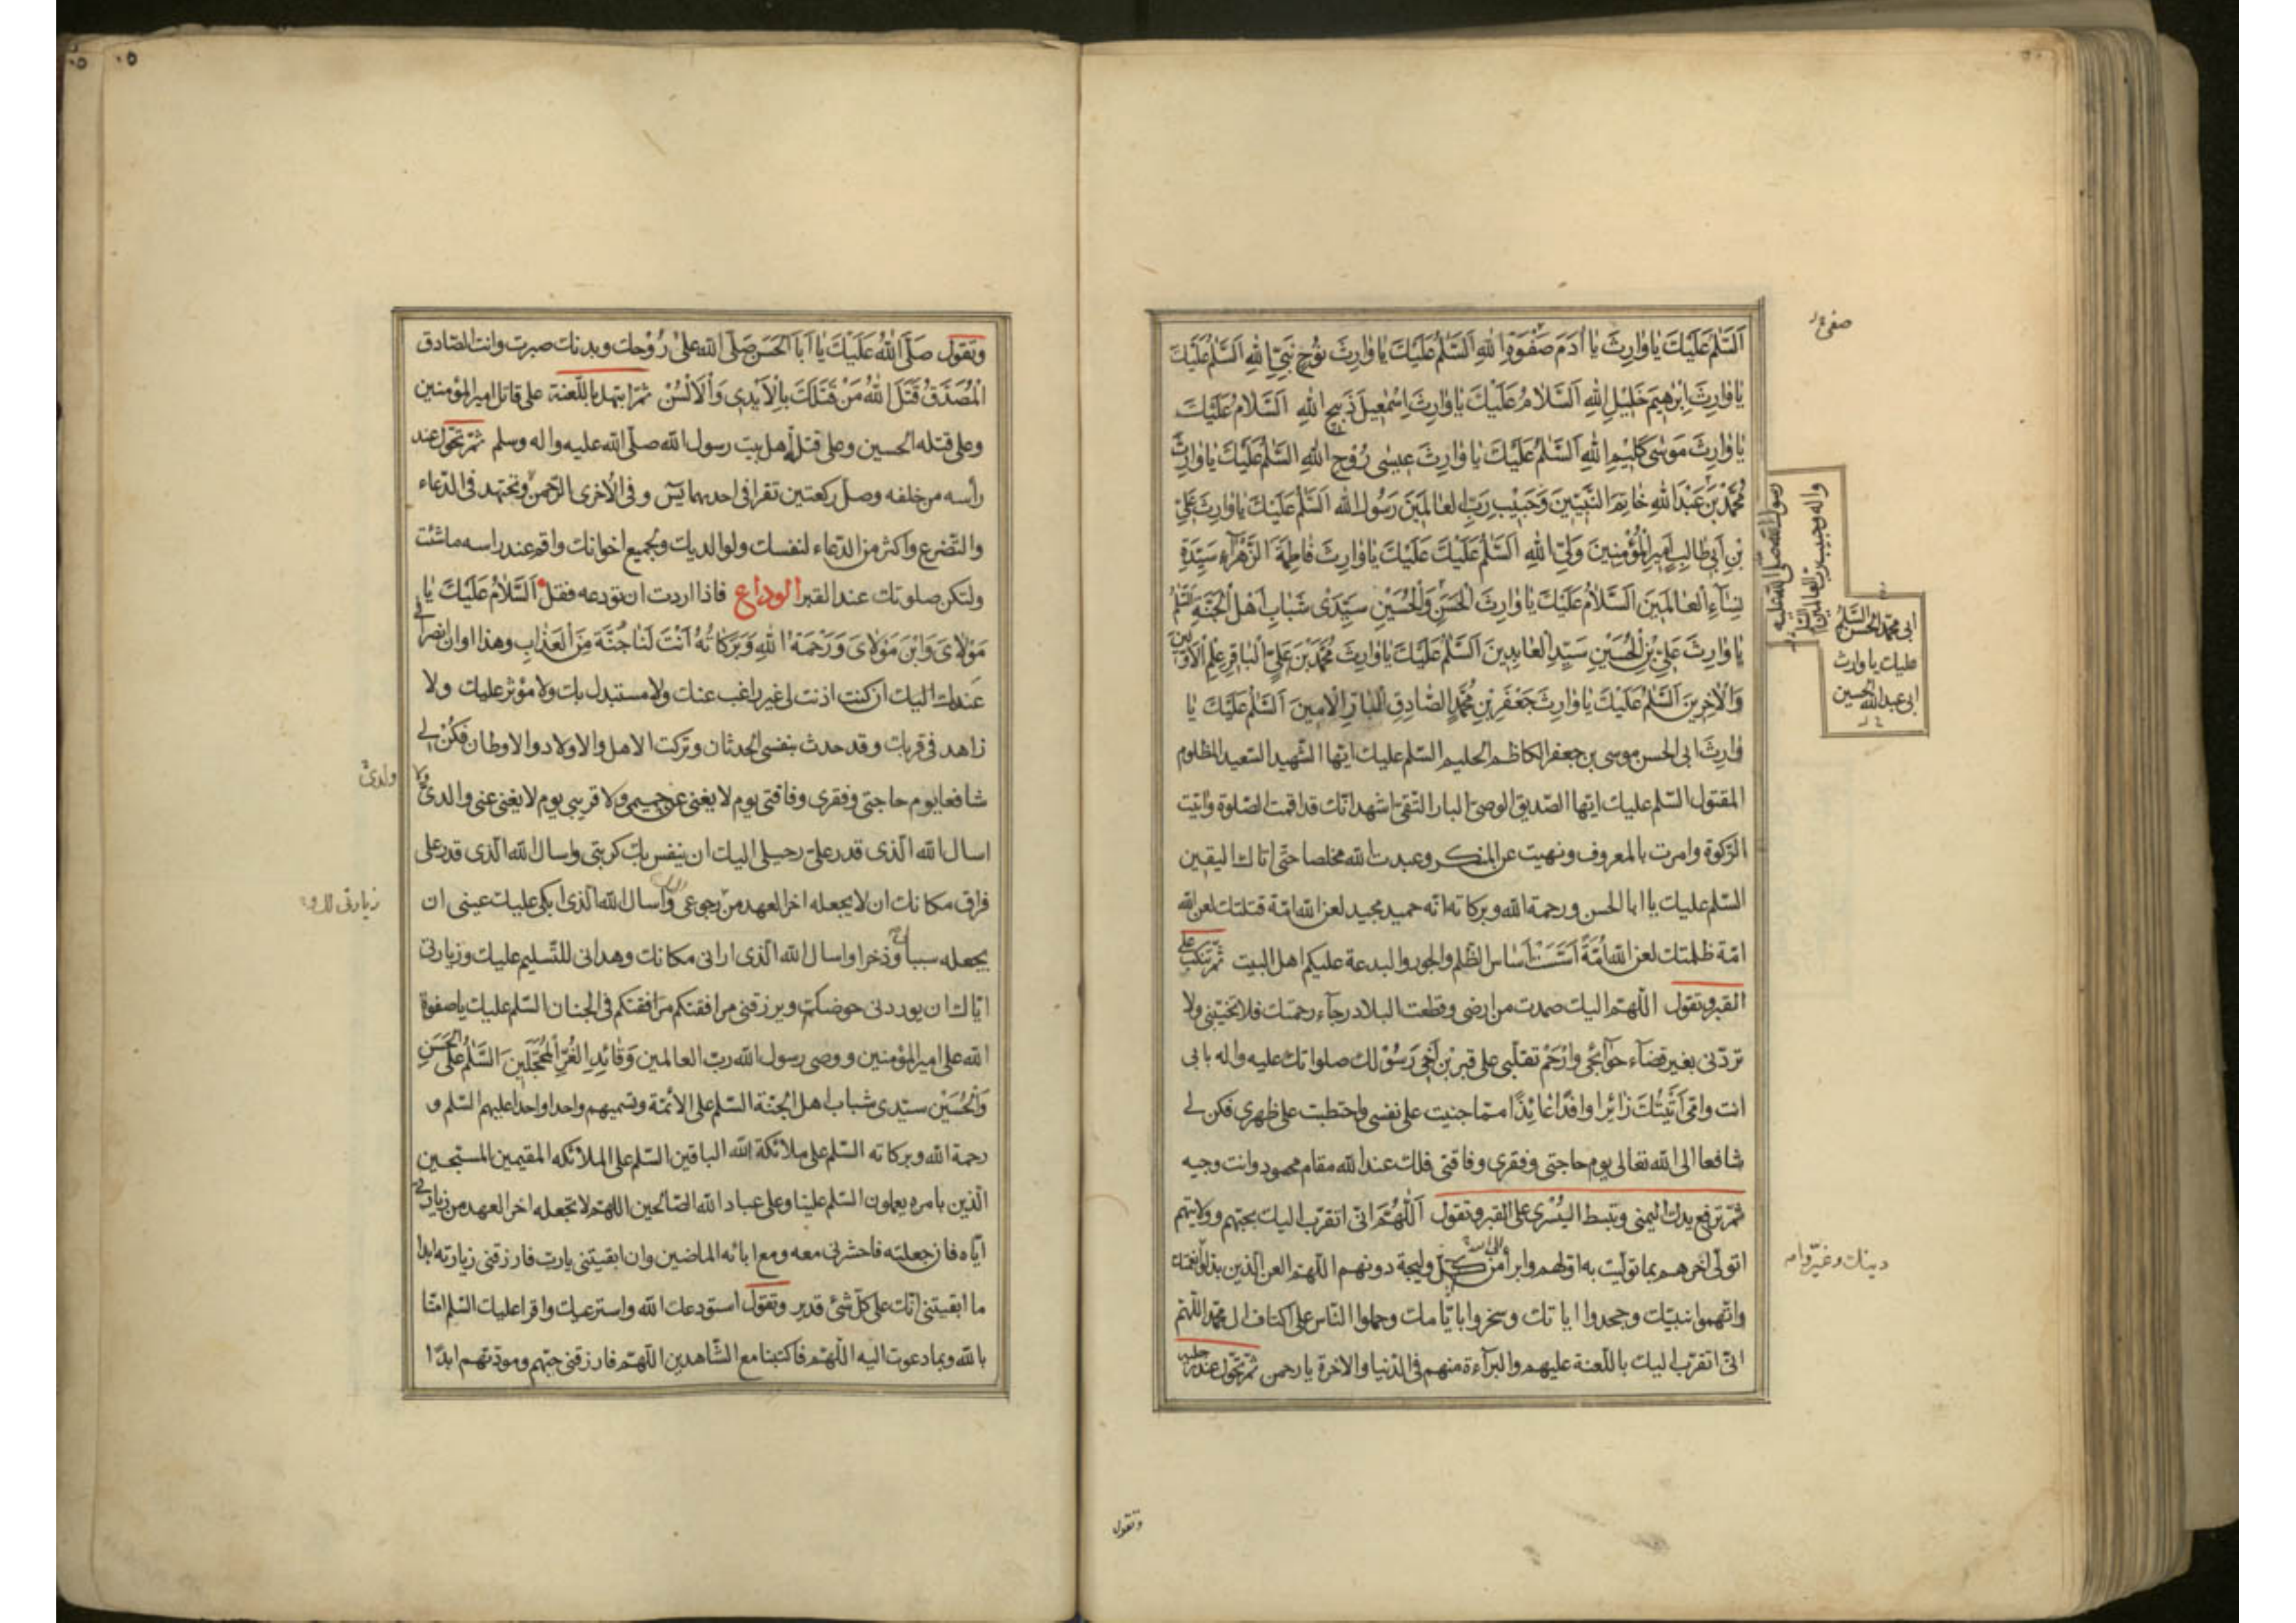 اَلسَّلٰمُ عَلَيْكَ يٰا وٰارِثَ يٰا اٰدَمَ صَفْوَةِ اللهِ اَلسَّلٰمُ عَلَيْكَ يٰا وٰارِثَ نُوْحٍ نَبِيِّ اللهِ اَلسَّلٰمُ عَلَيْكَ
يٰا وٰارِثَ اِبْرٰهِيمَ خَلِيْلِ اللهِ اَلسَّلٰامُ عَلَيْكَ يٰا وٰارِثَ اِسْمٰعِيلَ ذَبِيحِ اللهِ اَلسَّلٰامُ عَلَيْكَ
يٰا وٰارِثَ مُوْسٰى كَلِيْمِ اللهِ اَلسَّلٰمُ عَلَيْكَ يٰا وٰارِثَ عِيْسٰى رُوْحِ اللهِ السَّلٰمُ عَلَيْكَ يٰا وٰارِثَ
مُحَمَّدْ بْنِ عَبْدِ اللهِ خٰاتِمَ النَّبِيّيْنَ وَحَبِيْبِ رَبِّ الْعٰالَمِيْنَ رَسُوْلِ الله اَلسَّلٰمُ عَلَيْكَ يٰا وٰارِثَ عَلِيِّ
بْنِ اَبِي طٰالِبٍ اَمِيْرِ الْمُؤْمِنِينَ وَلِيِّ اللهِ اَلسَّلٰمُ عَلَيْكَ عَلَيْكَ يٰا وٰارِثَ فٰاطِمَةَ الزَّهْرٰآءِ سَيِّدَةِ
نِسٰآءِ الْعٰالَمِيْنَ اَلسَّلٰامُ عَلَيْكَ يٰا وٰارِثَ الْحَسَنِ وَالْحُسَيْنِ سَيِّدَىْ شَبٰابِ اَهْلِ الْجَنَّةِ اَلسَّلٰمُ
يٰا وٰارِثَ عَلِيِّ بْنِ الْحُسَيْنِ سَيِّدِ الْعٰابِدِينَ اَلسَّلٰمُ عَلَيْكَ يٰا وٰارِثَ مُحَمَّدِ بْنِ عَلِيٍّ الْبٰاقِرِ عِلْمِ الْاَوَّلِيْنَ
وَالْاٰخِرِيْنَ اَلسَّلٰمُ عَلَيْكَ يٰا وٰارِثَ جَعْفَرِ بْنِ مُحَمَّدٍ الصّٰادِقِ الْبٰارِّ الْاَمِيْنَ اَلسَّلٰمُ عَلَيْكَ يٰا
وٰارِثَ ابى الحسن موسى بن جعفر الكاظم الحليم السّلم عليك ايّها الشّهيد السّعيد المظلوم
المقتول السّلم عليك ايّها الصّديق الوصىّ البار التّقىّ اشهد انّك قد اقمت الصّلوة واٰتيت
الزّكوة وامرت بالمعروف ونهيت عن المنكر وعبدت الله مخلصا حتّى اتاك اليقين
السّلم عليك يا ابا الحسن ورحمة الله وبركاته انّه حميد مجيد لعن الله امّة قتلتك لعن الله
امّة ظلمتك لعن الله اُمَّةً اَسَّسَتْ اَسٰاس الظّلم والجور والبدعة عليكم اهل البيت ثمّ تنكب على
القبر وتقول اللّهمّ اليك صمدت من ارضى وقطعت البلاد رجآء رحمتك فلا تخيّبنى ولا
تردّنى بغير قضآء حَوٰآئجى وارْحَمْ تقلّبى على قبر بْنِ اَخِى رَسُوْلِكَ صلواتك عليه واله بابى
انت وامّى اَتَيْتُكَ زٰائِرًا وافدًا عٰائِذًا ممّا جنيت على نفسى واحتطبت على ظهرى فكن لى
شافعا الى الله تعالى يوم حاجتى وفقرى وفاقتى فلك عند الله مقام محمود وانت وجيه
ثمّ ترفع يدك اليمنى وتبسط اليُسْرى على القبر وتقول اَللّٰهُمَّ انّى اتقرّب اليك بحبّهم وولايتهم
اتولّى اخرهم بما تولّيت به اوّلهم وابرأ من كلّ وليجة دونهم اللّهمّ العن الّذين بدّلوا نعمتك
واتّهموا نبيّك وجحدوا اياتك وسخروا باياّمك وحملوا النّاس على اكتاف ال محمّد اللّهمّ
انّى اتقرّب اليك باللّعنة عليهم والبرآءة منهم فى الدّنيا والاخرة يا رحمن ثمّ تحوّل عند رجليه
رسول الله صلّى الله عليه
واله وحبيب ربّ العالمين
ابى محمّد الحسن السّلم
عليك يا وارث
ابى عبد الله الحسين
وتقول
وتقول صَلَّى اللهُ عَلَيْكَ يٰا اَبَا الْحَسَنِ صَلَّى الله عَلىٰ رُوْحِك وبدنك صبرت وانت الصّادق
الْمُصَدَّقُ قَتَلَ اللهُ مَنْ قَتَلَكَ بِالْاَيْدِى وَالْاَلْسُنْ ثمّ ابتهل باللّعنة على قاتل امير المؤمنين
وعلى قتله الحسين وعلى قتلة اهل بيت رسول الله صلّى الله عليه واله وسلم ثمّ تحّول عند
رأسه من خلفه وصلّ ركعتين تقرا فى احديهما يس وفى الاخرى الرّحمن وتجتهد فى الدّعاء
والتّضرع واكثر من الدّعاء لنفسك ولوالديك ولجميع اخوانك واقم عند راسه ما شئت
ولتكن صلوتك عند القبر الوداع فاذا اردت ان تودعه فقل اَلسَّلٰامُ عَلَيْكَ يٰا
مَوْلٰاىَ وَابْنَ مَوْلٰاىَ وَرَحْمَةُ اللهِ وَبَرَكٰاتُهُ اَنْتَ لَنٰا جُنَّةَ مِنَ الْعَذٰابِ وهذا اوان انصرافى
عَنك اليك ان كنت اذنت لى غير راغب عنك ولا مستبدل بك ولا مؤثر عليك ولا
زاهد فى قربك وقد حدث بنفسى الحدثان وتركت الاهل والاولاد والاوطان فكُنْ لى
شافعا يوم حاجتى وفقرى وفاقتى يوم لا يغنى عن حميمى ولا قريبى يوم لا يغنى عنى والدى ولا
اسال الله الّذى قدر علىّ رحيلى اليك ان ينفس بك كربتى واسال الله الّذى قدر على
فراق مكانك ان لا يجعله اخر العهد من رجوعى واسال الله الّذى ابكى عليك عينى ان
يجعله سببا وذخرا واسال الله الّذى ارانى مكانك وهدانى للتّسليم عليك وزيارتى
ايّاك ان يوردنى حوضكم ويرزقنى مرافقتكم مرافقتكم فى الجنان السّلم عليك يا صفوة
الله على امير المؤمنين ووصى رسول الله ربّ العالمين وَقٰائِدِ الْغُرِّ الْمُحَجَّلِيْنَ اَلسَّلٰمُ عَلَى الْحَسَنِ
وَالْحُسَيْن سيّدى شباب اهل الجنّة السّلم على الائمّة وتسميهم واحدا واحدا عليهم السّلم و
رحمة الله وبركاته السّلم على ملائكة الله الباقين السّلم على الملائكه المقيمين المسبّحين
الّذين بامره يعملون السّلم علينا وعلى عباد الله الصّالحين اللّهمّ لا تجعله اخر العهد من زيارتى
ايّاه فان جعلته فاحشرنى معه ومع ابائه الماضين وان ابقيتنى يا ربّ فارزقنى زيارته ابدا
ما ابقيتنى انّك على كلّ شئ قدير وتقول استودعك الله واسترعيك واقرا عليك السّلم امنّا
بالله وبما دعوت اليه اللّهمّ فاكتبنا مع الشّاهدين اللّهمّ فارزقنى حبّهم ومودّتهم ابدًا
ولدىّ